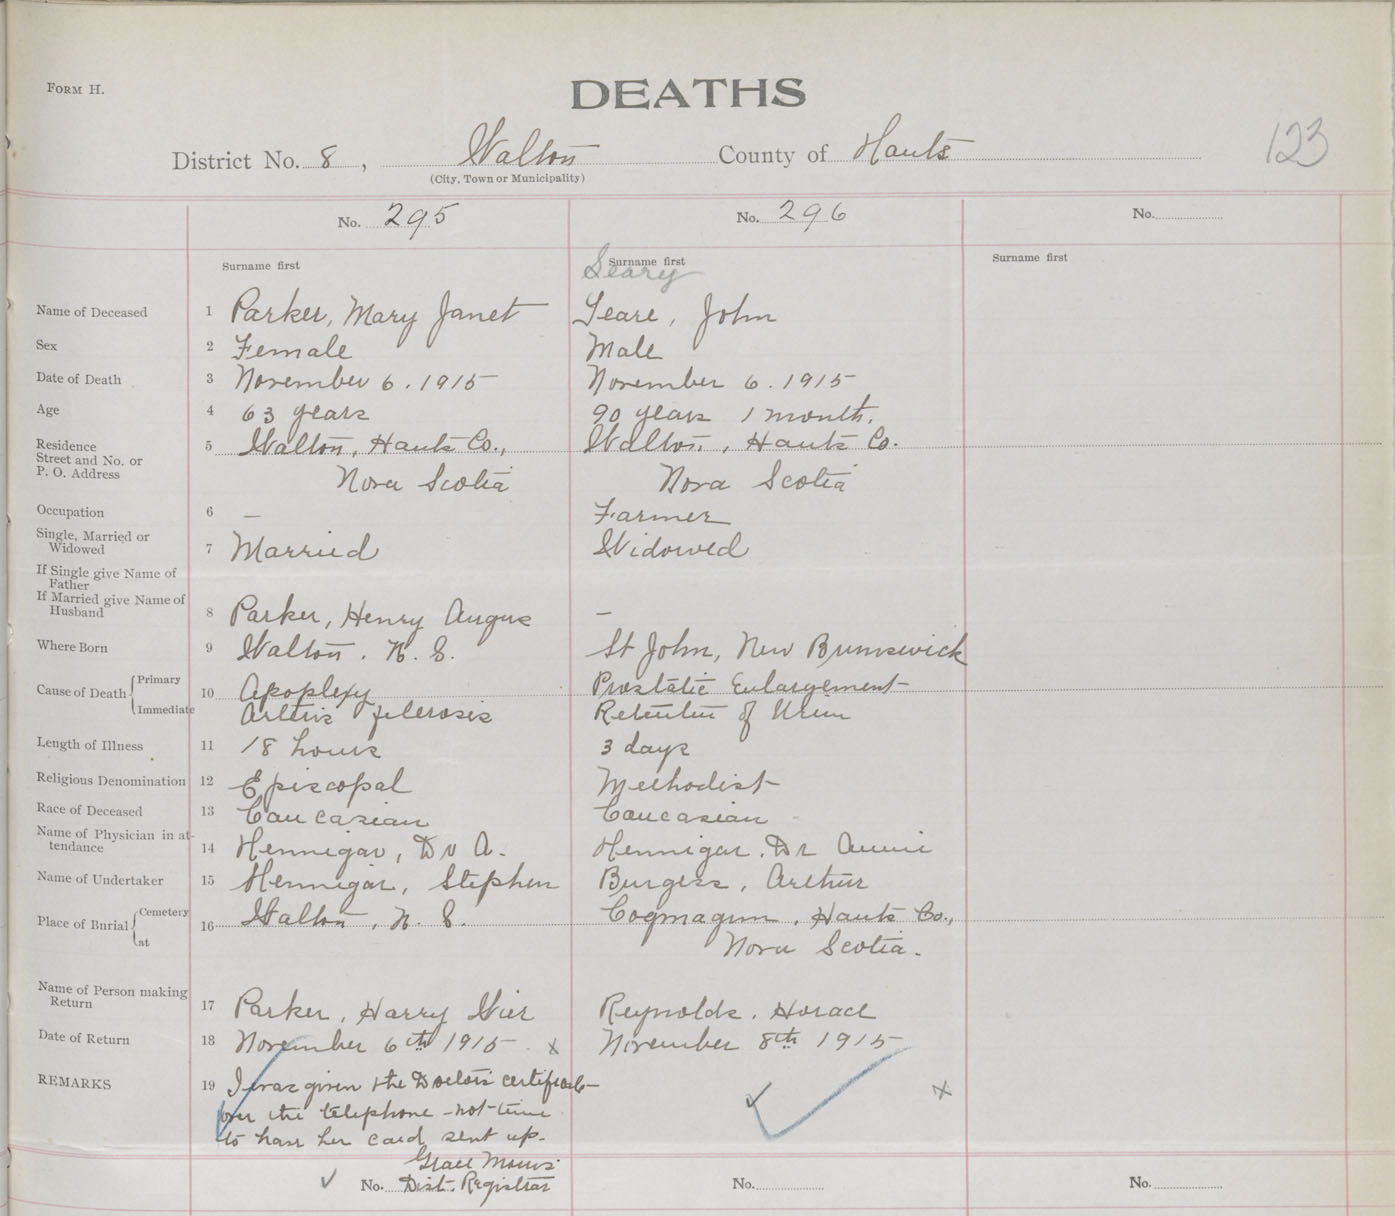 FORM H.
DEATHS
123
District No. 8, Walton County of Hants
(City, Town or Municipality)
No. 295 No. 296 No.
Surname first Surname first Surname first
Seary
Name of Deceased 1 Parker, Mary Janet Seare, John
Sex 2 Female Male
Date of Death 3 November 6. 1915 November 6. 1915
Age 4 63 years 90 years 1 month.
Residence
Street and No. or
P. O. Address
5 Walton, Hants Co., Walton, Hants Co.
Nova Scotia Nova Scotia
Occupation 6 – Farmer
Single, Married or
Widowed 7 Married Widowed
If Single give Name of
Father
If Married give Name of
Husband 8 Parker, Henry Angus –
Where Born 9 Walton. N. S. St John, New Brunswick
Cause of Death { Primary 10 Apoplexy Prostatic Enlargement
Immediate Retention of Urine
Length of Illness 11 18 hours 3 days
Religious Denomination 12 Episcopal Methodist
Race of Deceased 13 Caucasian Caucasian
Name of Physician in at-
tendance 14 Hennigar, Dr A. Hennigar. Dr Annie
Name of Undertaker 15 Hennigar, Stephen Burgess, Arthur
Place of Burial { Cemetery
at
16 Walton, N. S. Cogmagun, Hants Co.,
Nova Scotia.
Name of Person making
Return 17 Parker, Harry Wier Reynolds, Horace
Date of Return 18 November 6th 1915 x November 8th 1915
REMARKS 19 I was given the Doctors certificate
over the telephone – not time
to have her card sent up. x
Grace Morris
No. Dist. Registrar No. No.